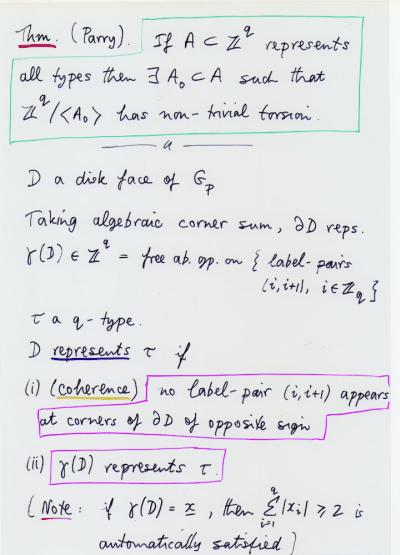 Thm. (Parry). If A ⊂ ℤ^q represents
all types then ∃ A₀ ⊂ A such that
ℤ^q/⟨A₀⟩ has non-trivial torsion.
D a disk face of G_p
Taking algebraic corner sum, ∂D reps.
γ(D) ∈ ℤ^q = free ab. gp. on { label-pairs
(i, i+1), i ∈ ℤ_q }
τ a q-type.
D represents τ if
(i) (coherence) no label-pair (i, i+1) appears
at corners of ∂D of opposite sign
(ii) γ(D) represents τ.
(Note: if γ(D) = x, then ∑_{i=1}^{q} |x_i| ≥ 2 is
automatically satisfied)